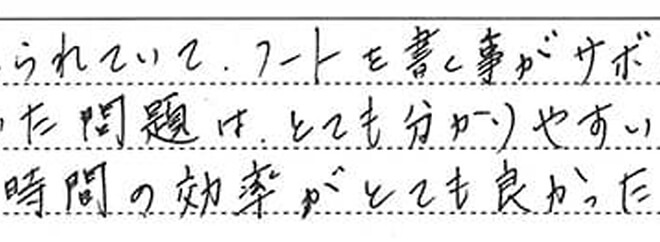 られていて、ノートを書く事がサボ
った問題は、とても分かりやすい
時間の効率がとても良かった